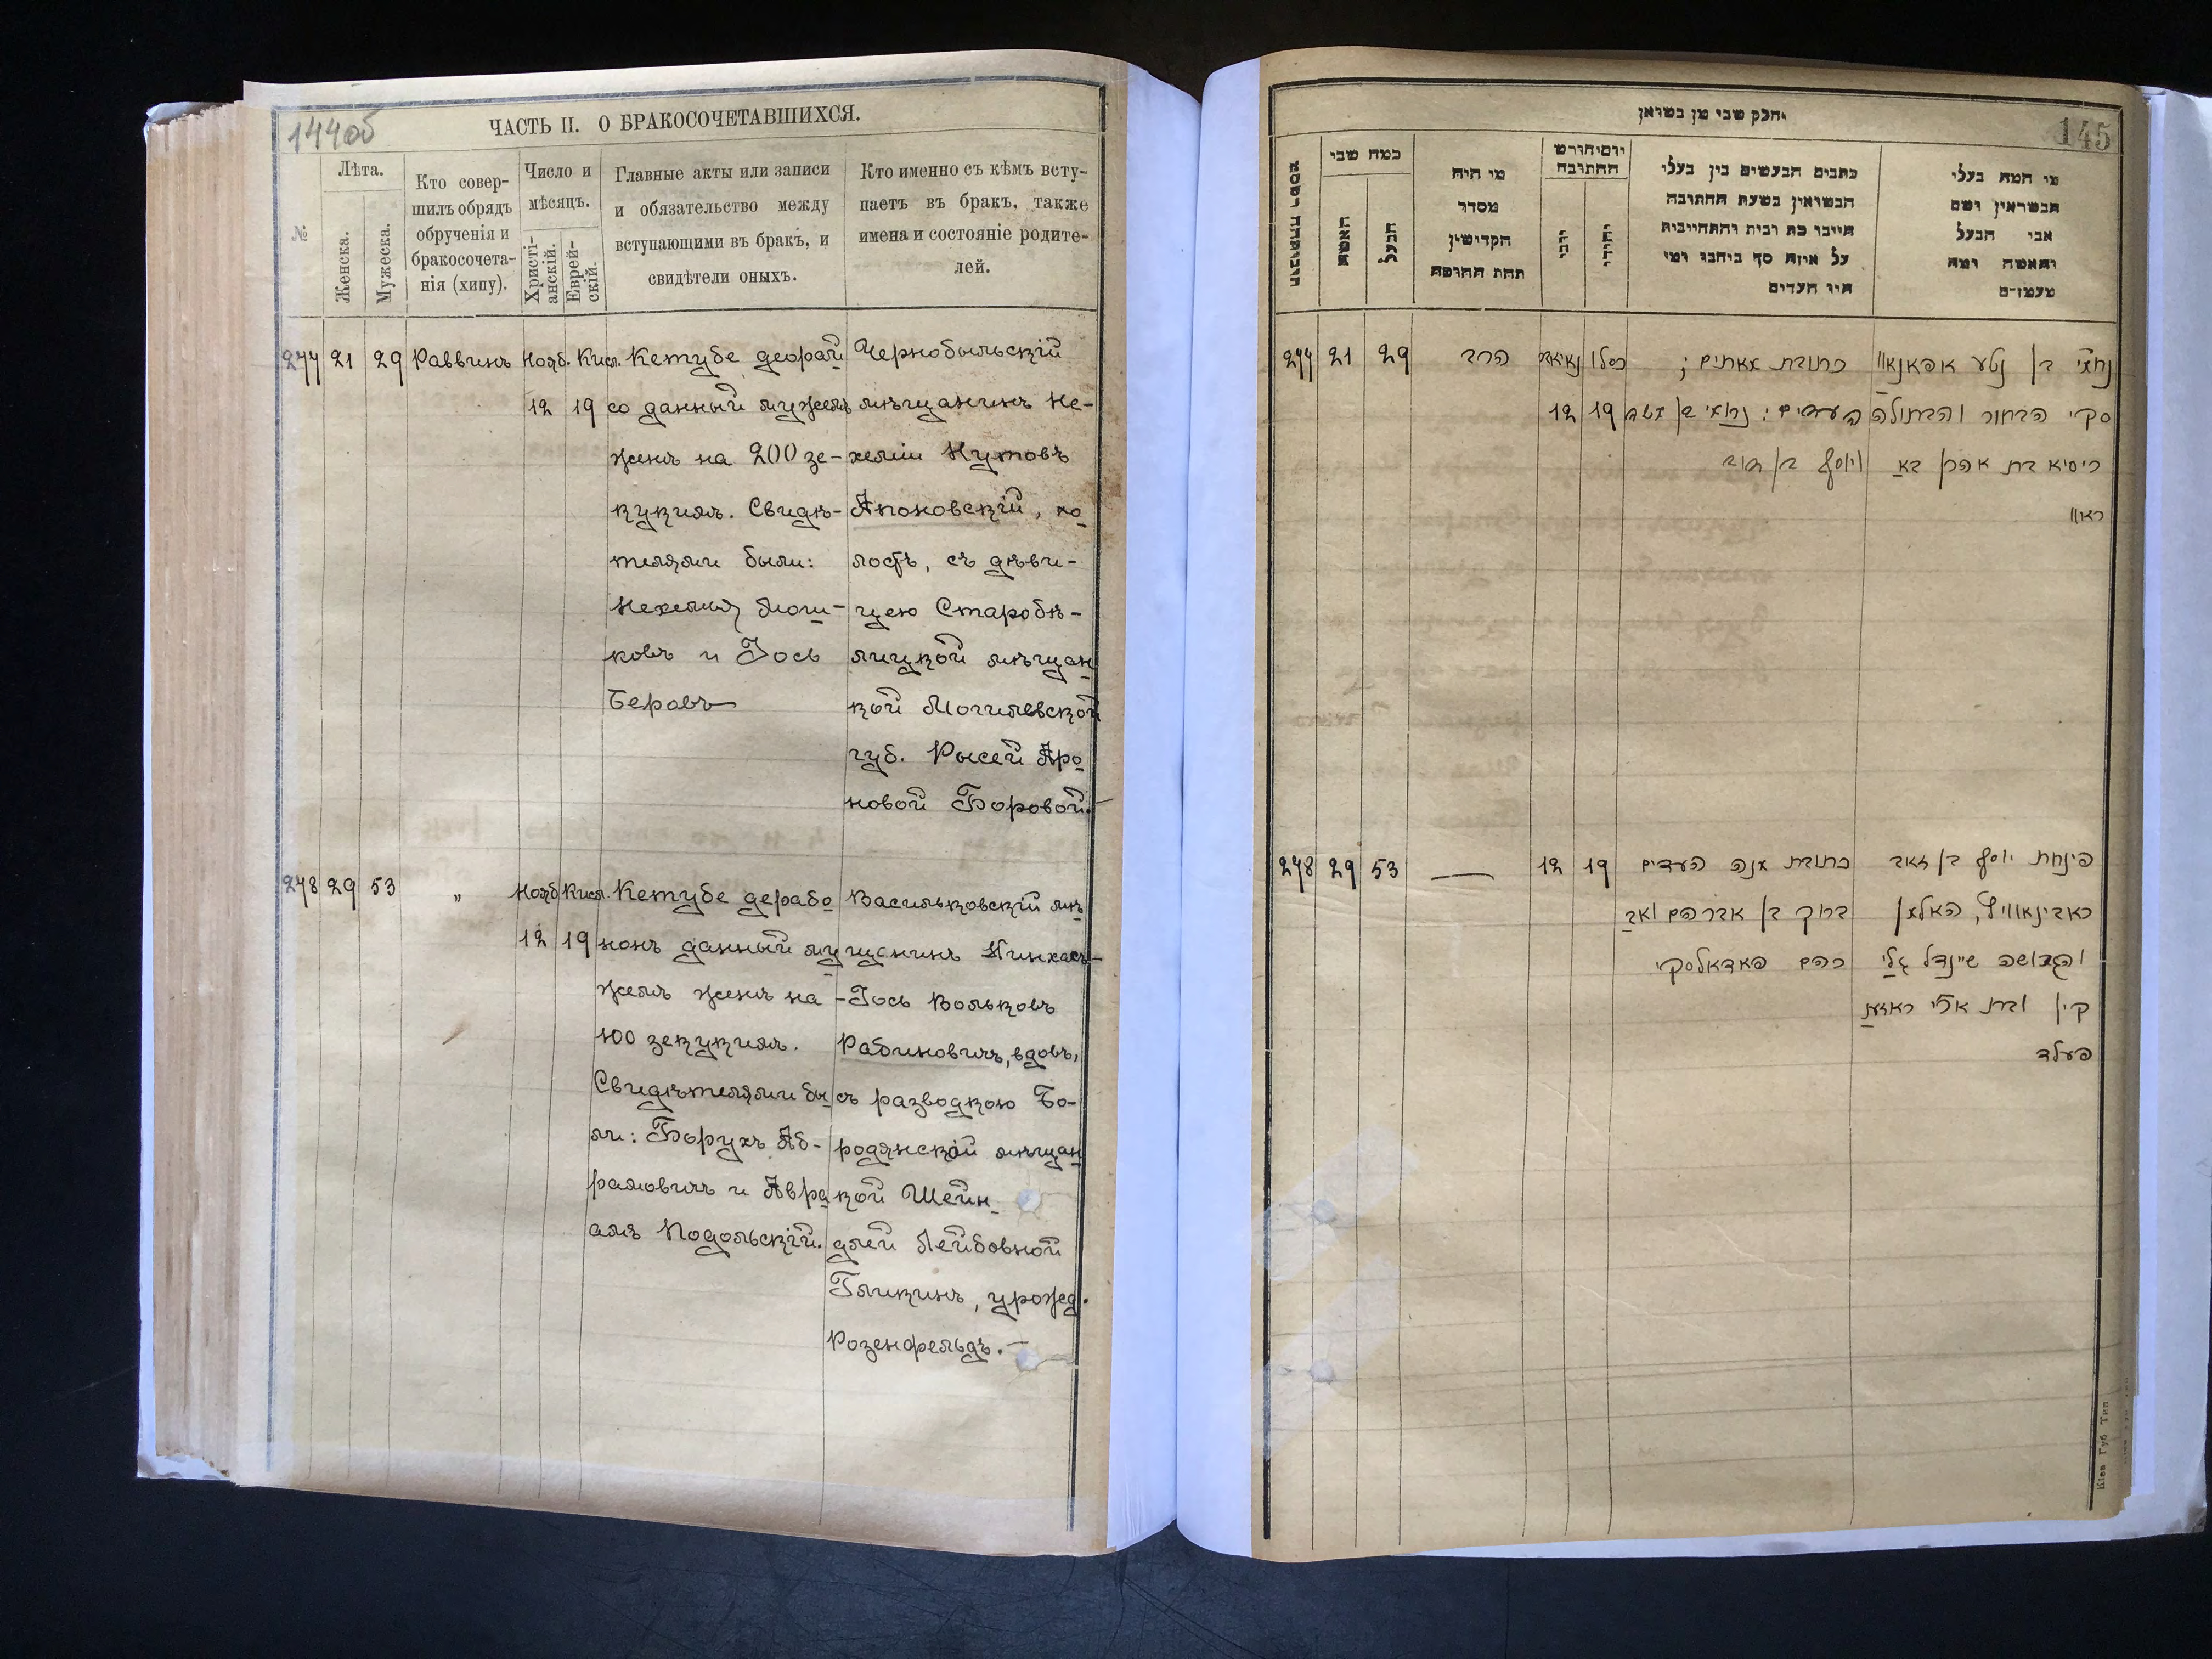 144об
ЧАСТЬ II. О БРАКОСОЧЕТАВШИХСЯ.
№
Лѣта.
Женска.
Мужеска.
Кто совер-
шилъ обрядъ
обрученія и
бракосочета-
нія (хипу).
Число и
мѣсяцъ.
Христі-
анскій.
Еврей-
скій.
Главные акты или записи
и обязательство между
вступающими въ бракъ, и
свидѣтели оныхъ.
Кто именно съ кѣмъ всту-
паетъ въ бракъ, также
имена и состояніе родите-
лей.
277 21 29 Раввинъ Нояб. Кисл.
12 19
Кетубе деорай
со данный мужемъ
женѣ на 200 зе-
кукимъ. Свидѣ-
телями были:
Нехемія Мош-
ковъ и Іось
Беровъ
Чернобыльскій
мѣщанинъ Не-
хемія Нутовъ
Апоновскій, хо
лостъ, съ дѣви-
цею Старобѣ-
лицкой мѣщан
кой Могилевской
губ. Рысей Аро
новой Боровой.
278 29 53 " Нояб Кисл.
12 19
Кетубе дерабо
нонъ данный му
жемъ женѣ на
100 зекукимъ.
Свидѣтелями бы
ли: Борухъ Аб-
рамовичъ и Авра
амъ Подольскій.
Васильковскій мѣ
щанинъ Пинхасъ-
Іось Вольковъ
Рабиновичъ, вдовъ,
съ разводкою Бо-
родянской мѣщан
кой Шейн-
длей Лейбовной
Гликинъ, урожед.
Розенфельдъ.
145
חלק שני מן נשואין
כמה שני
האשה
הבעל
מי היה
מסדר
הקדישין
תחת החופה
יום וחודש
החתונה
יוני
יהודי
כתבים הנעשים בין בעלי
הנשואין בשעת החתונה
היינו כת ובית והתחייבות
על איזה סך ביחבו ומי
היו העדים
מי המה בעלי
הנשואין ושם
אבי הבעל
והאשה ומה
מעמדם
277 21 29 הרב
12 19
כתובת מאתים ;
העדים : נחמי׳ בן משה
ויוסף בן דוב
נחמי׳ בן נטע אפאנאוו
סקי הבחור והבתולה
ריסיא בת אהרן בא
ראוו
278 29 53 — 12 19
כתובת מנה העדים
ברוך בן אברהם ואב
רהם פאדאלסקי
פינחס יוסף בן זאב
ראבינאוויץ, האלמן
והגרושה שיינדל גלי
קין ובת ארי׳ ראזענ
פעלד
Кіев Губ Тип